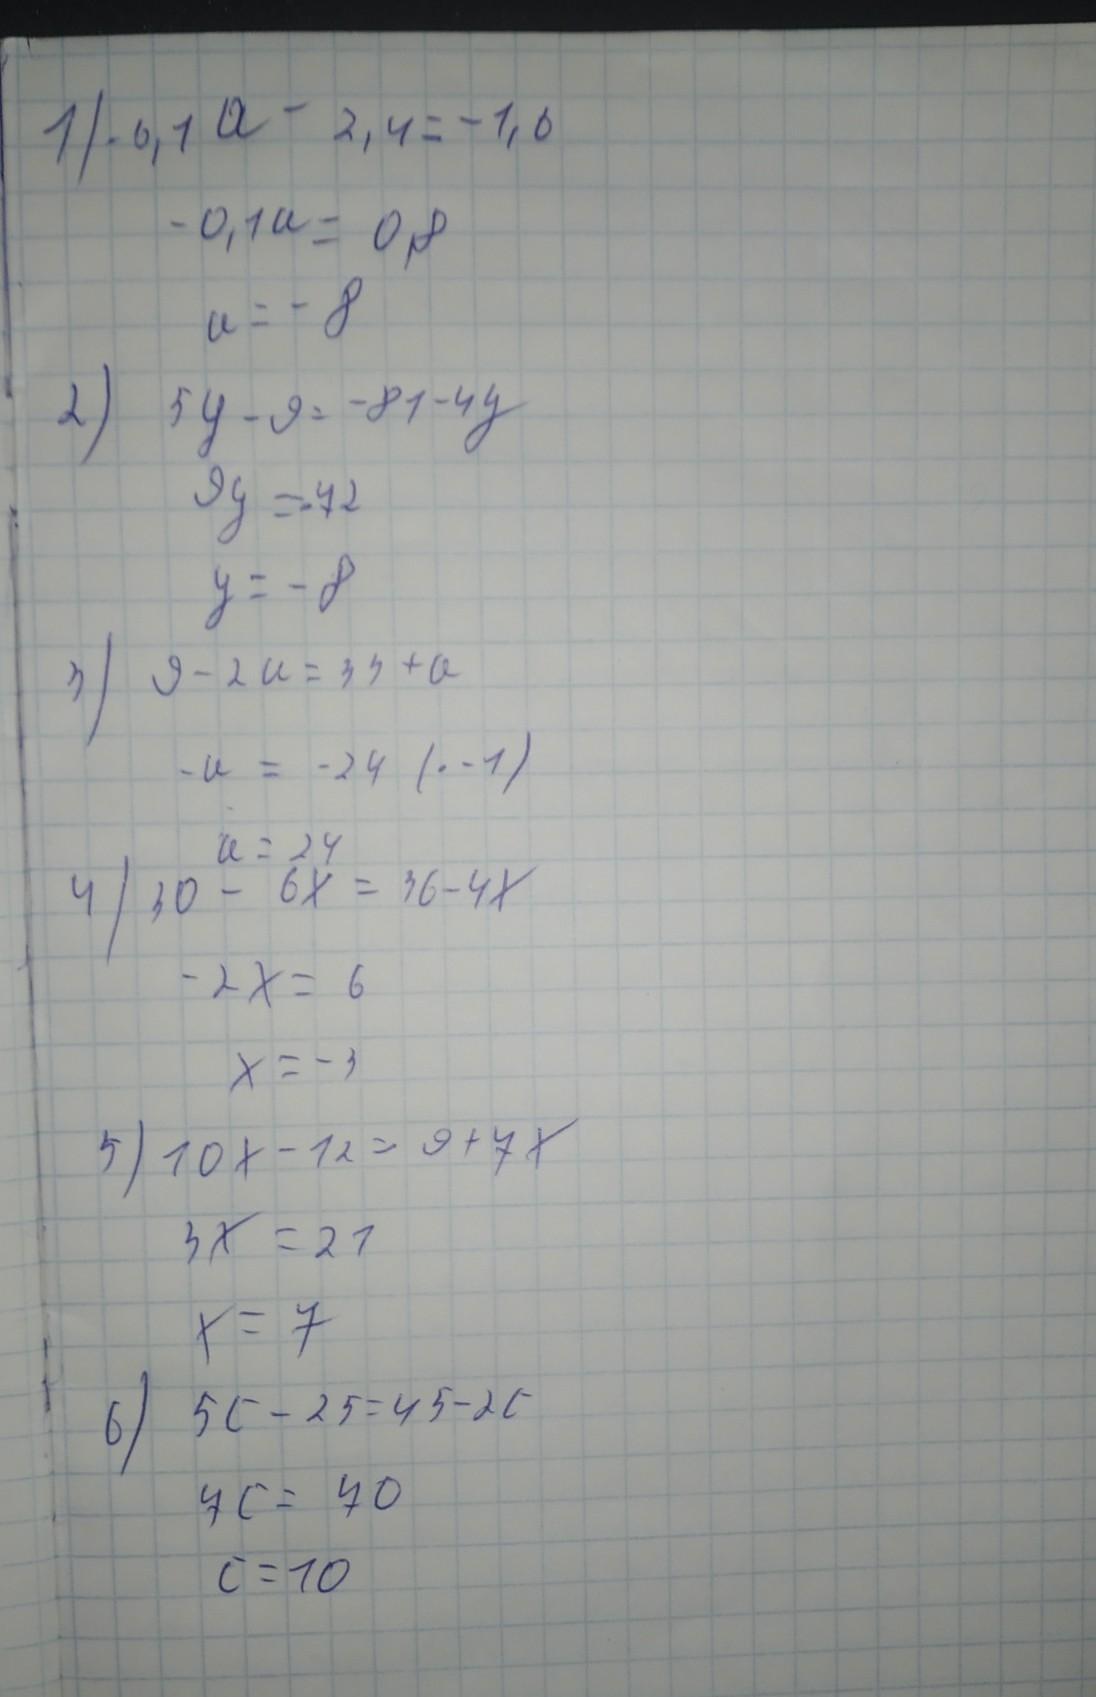 1) -0,1a - 2,4 = -1,6
-0,1a = 0,8
a = -8
2) 5y - 9 = -81 - 4y
9y = -72
y = -8
3) 9 - 2a = 33 + a
-a = -24 (· -1)
a = 24
4) 30 - 6x = 36 - 4x
-2x = 6
x = -3
5) 10x - 12 = 9 + 7x
3x = 21
x = 7
6) 5c - 25 = 45 - 2c
7c = 70
c = 10